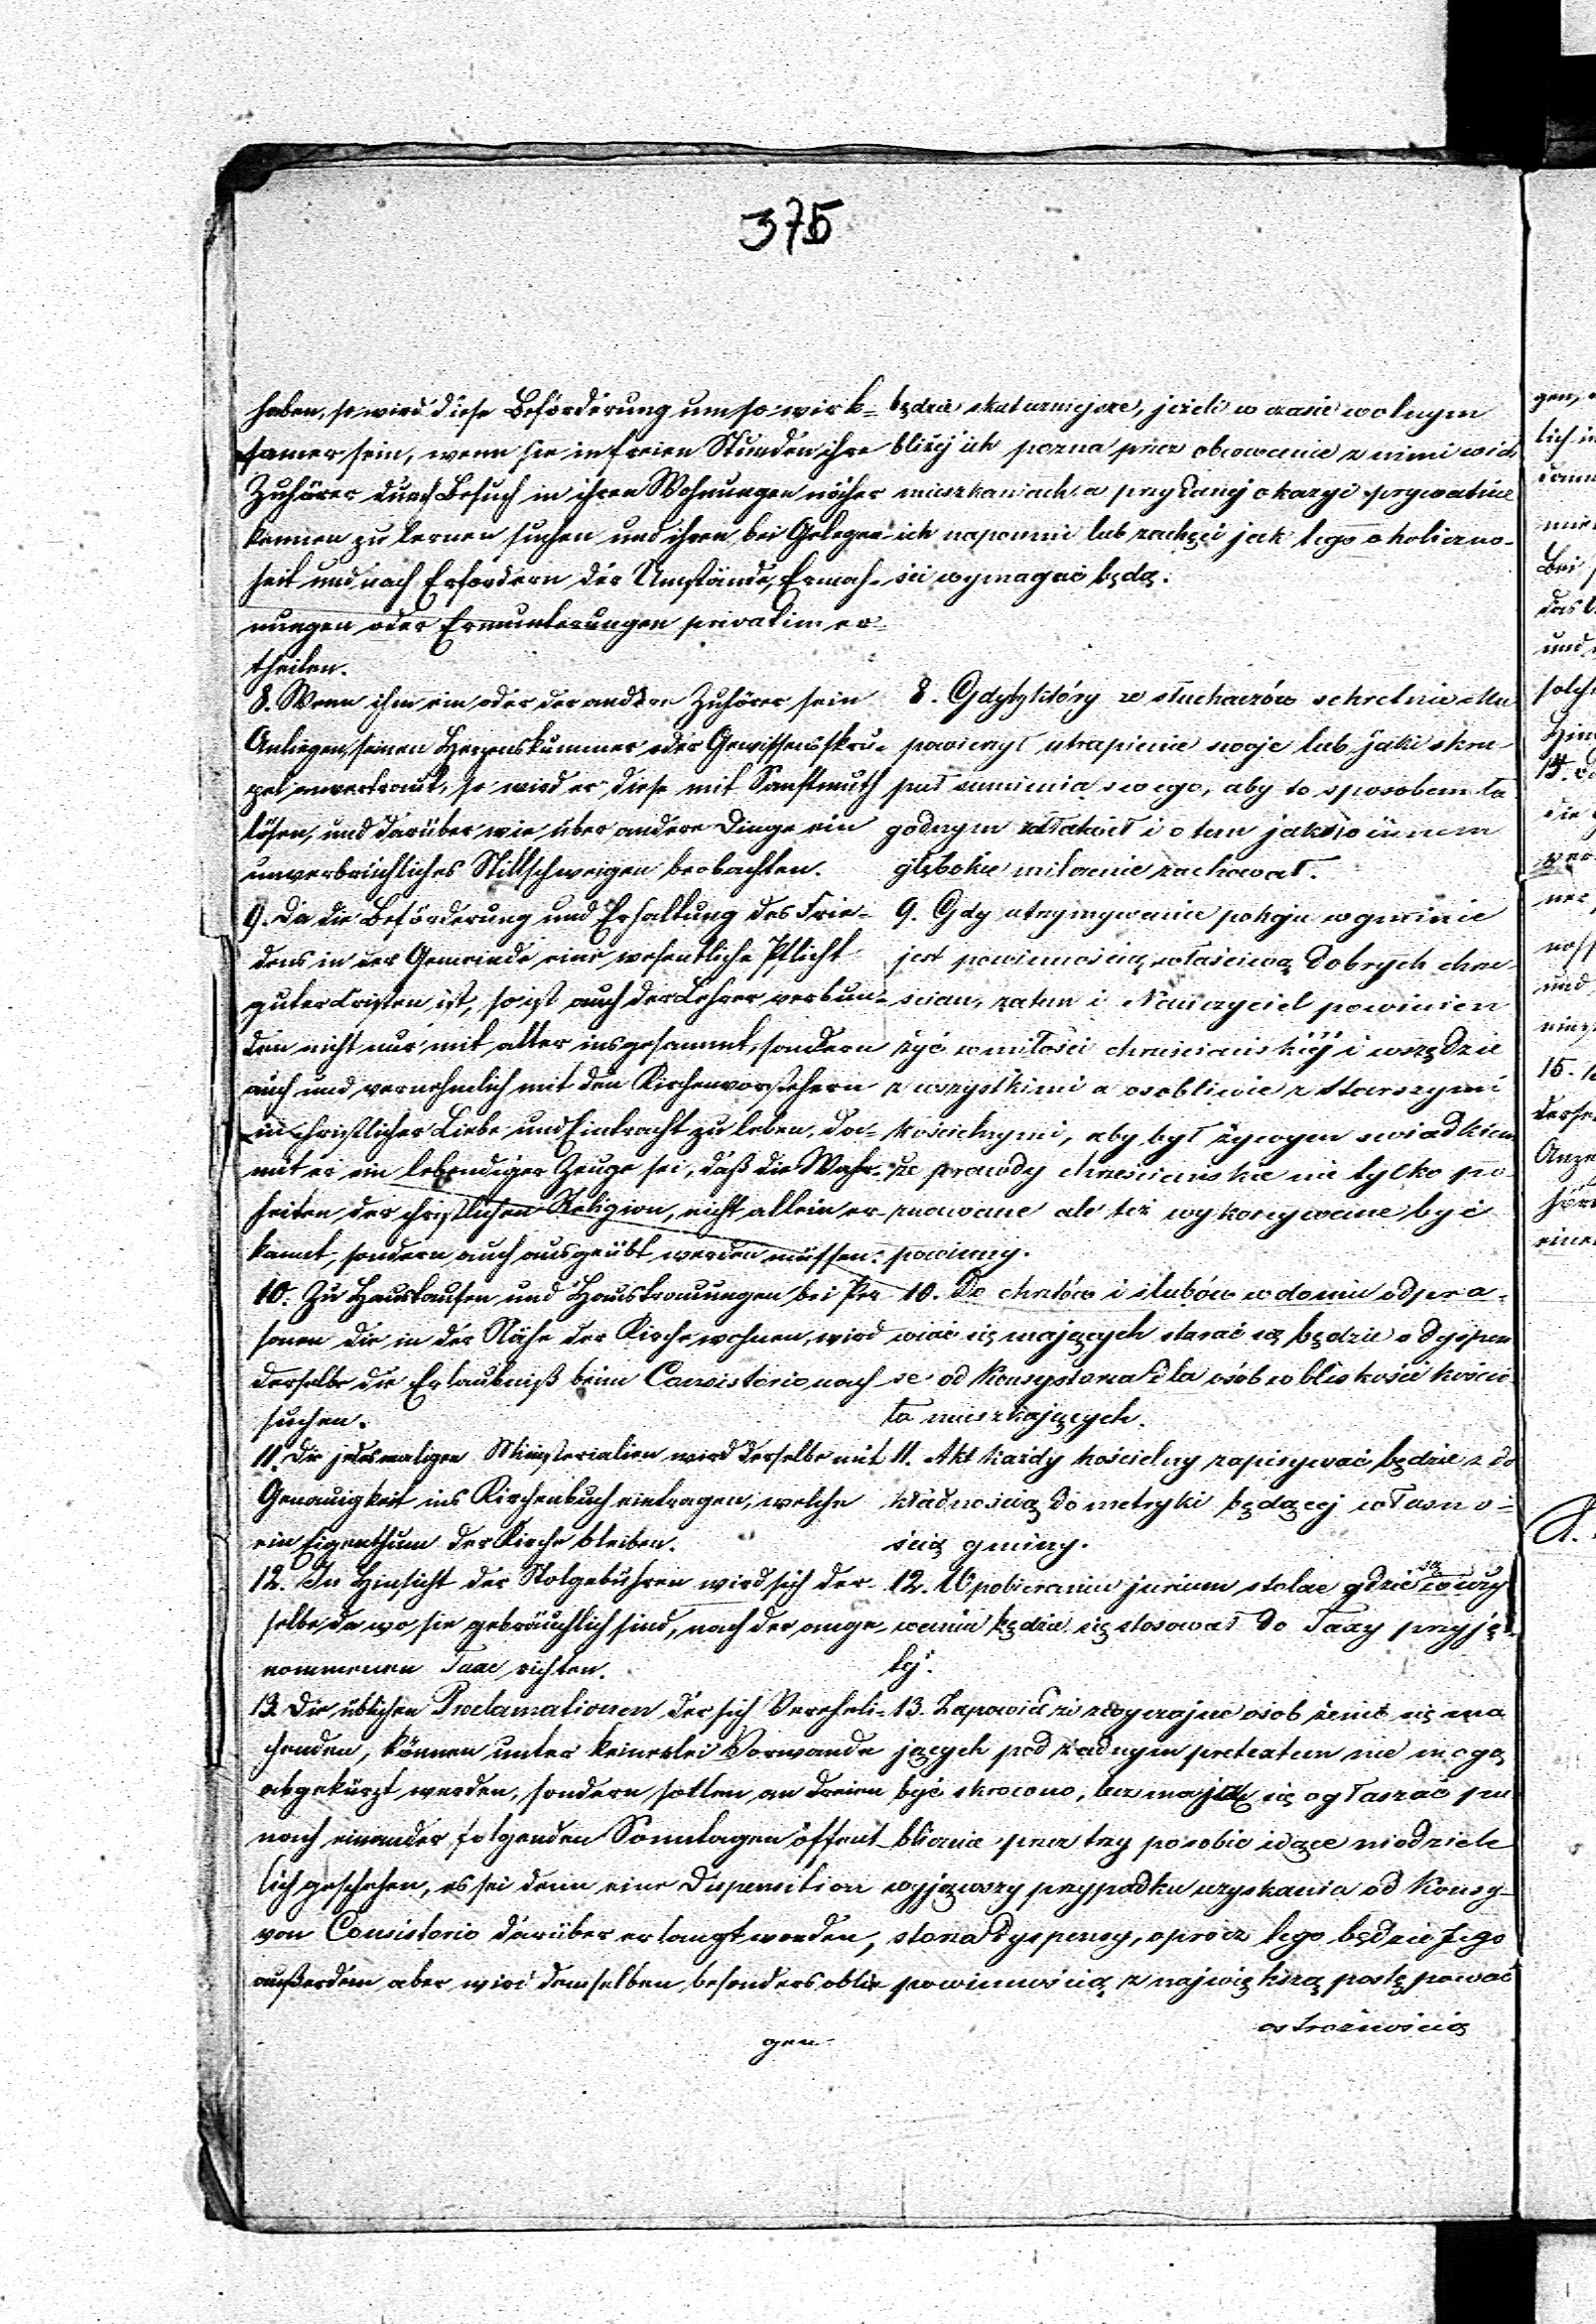 375
haben, so wird diese Beförderung um so wirk-
samer sein, wenn sie in freien Stunden ihre
Zuhörer durch Besuch in ihren Wohnungen näher
kennen zu lernen suchen und ihnen bei Gelegen-
heit und nach Erfordern der Umstände, Ermah-
nungen oder Ermunterungen privatim er-
theilen.
8. Wenn ihm ein oder der andere Zuhörer sein
Anliegen, seinen Herzenskummer oder Gewissensskru-
pel anvertraut, so wird er diese mit Sanftmuth
lösen, und darüber wie über andere Dinge ein
unverbrüchliches Stillschweigen beobachten.
9. Da die Beförderung und Erhaltung des Frie-
dens in der Gemeinde eine wesentliche Pflicht
guter Cristen ist, so ist auch der Lehrer verbun-
den nicht nur mit aller insgesammt, sondern
auch und vernehmlich mit den Kirchenvorstehern
in christlicher Liebe und Eintracht zu leben, da-
mit er ein lebendiger Zeuge sei, daß die Wahr-
heiten der christlichen Religion, nicht allein er
kannt, sondern auch ausgeübt werden müssen.
10. Zu Haustaufen und Haustrauungen bei Per
sonen die in der Nähe der Kirche wohnen, wird
derselbe die Erlaubniß beim Consistorio nach
suchen.
11. Die jedesmaligen Ministerialien wird derselbe mit
Genauigkeit ins Kirchenbuch eintragen, welche
ein Eigenthum der Kirche bleiben.
12. In Hinsicht der Stolgebühren wird sich der-
selbe da wo sie gebräuchlich sind, nach der ange-
nommenen Taxe richten.
13. Die üblichen Proclamationen der sich Vereheli-
chenden, können unter keinerlei Vorwande
abgekürzt werden, sondern sollen an dreien
nach einander folgenden Sonntagen öffent-
lich geschehen, es sei denn eine Dispensition
von Consistorio darüber erlangt worden,
außerdem aber wird demselben besonders oblie
gen
będzie skuteczniejsze, jeżeli w czasie wolnym
bliżej ich pozna przez obcowanie z nimi w ich
mieszkaniach a przy danej okazyi prywatnie
ich napomni lub zachęci jak tego okoliczno-
ści wymagać będą.
8. Gdyby który ze słuchaczów sekretnie Mu
powierzył utrapienie swoje lub jaki skru-
puł sumienia swego, aby to sposobem ła
godnym załatwił i o tem jako i o innem
głębokie milczenie zachował.
9. Gdy utrzymywanie pokoju w gminie
jest powinnością właściwą dobrych chrze-
ścian, zatem i Nauczyciel powinien
żyć w miłości chrześciańskiéj i wszędzie
z wszystkimi a osobliwie z Starszymi
kościelnymi, aby był żywym świadkiem
że prawdy chrześciańskie nie tylko po
znawane ale też wykonywane być
powinny.
10. Do chrztów i ślubów w domu odpra-
wiać się mających starać się będzie o dyspen
se od Konsystorza dla osób w bliskości kościo
ła mieszkających.
11. Akt każdy kościelny zapisywać będzie z do
kładnością do metryki będącej własno-
ścią gminy.
12. W pobieraniu jurium stolae gdzie są w uży
waniu będzie się stosował do Taxy przyję-
tej.
13. Zapowiedzi zwyczajne osob żenić się ma
jących pod żadnym pretextem nie mogą
być skrocono, lecz mają się ogłaszać pu
blicznie przez trzy po sobie idące niedziele
wyjąwszy przypadku uzyskania od Konsy-
storza dyspensy, oprócz tego będzie Jego
powinnością z największą postępować
ostrożnością